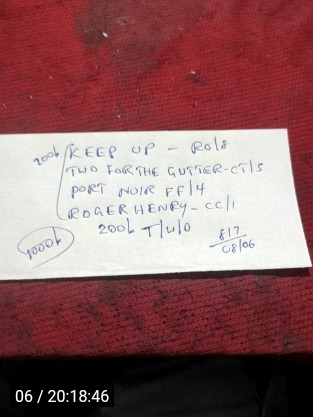 200b KEEP UP - RO/8
TWO FOR THE GUTTER-CT/5
PORT NOIR FF/4
ROGER HENRY-CC/1
200b T/W/O
1000b
817
08/06
06 / 20:18:46